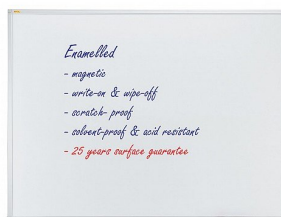 Enamelled
- magnetic
- write-on & wipe-off
- scratch- proof
- solvent-proof & acid resistant
- 25 years surface guarantee